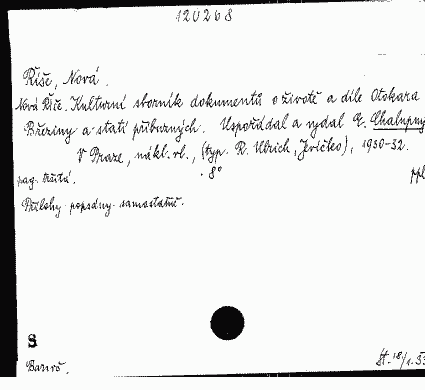 120268
Říše, Nová.
Nová Říč. Kulturní sborník dokumentů o životě a díle Otokara
Březiny a statí příbuzných. Uspořádal a vydal E. Chalupný
V Praze, nákl. vl., (typ. R. Ulrich, Jevíčko), 1930-32.
pag. různá. 8° ppl
Přílohy popsány samostatně.
S
St. 18/1. 53